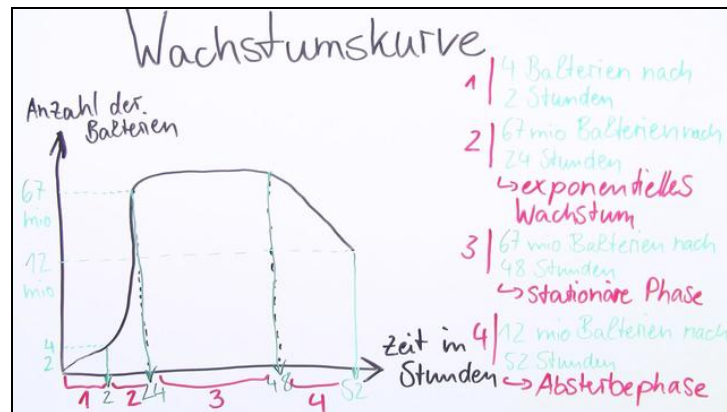 Wachstumskurve
Anzahl der
Bakterien
67
mio
12
mio
4
2
1
2
2
24
3
48
4
52
Zeit in
Stunden
1 | 4 Bakterien nach
2 Stunden
2 | 67 mio Bakterien nach
24 Stunden
↳ exponentielles
Wachstum
3 | 67 mio Bakterien nach
48 Stunden
↳ Stationäre Phase
4 | 12 mio Bakterien nach
52 Stunden
↳ Absterbephase